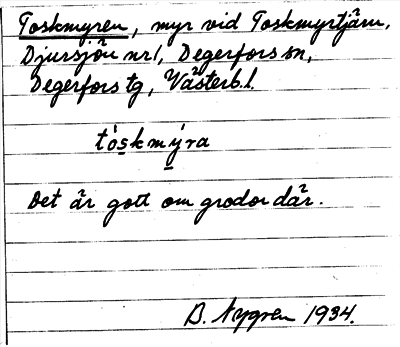 Toskmyren, myr vid Toskmyrtjärn,
Djursjön nr1, Degerfors sn,
Degerfors tg, Västerb.l.
tòskmýra
Det är gott om grodor där.
B. Nygren 1934.